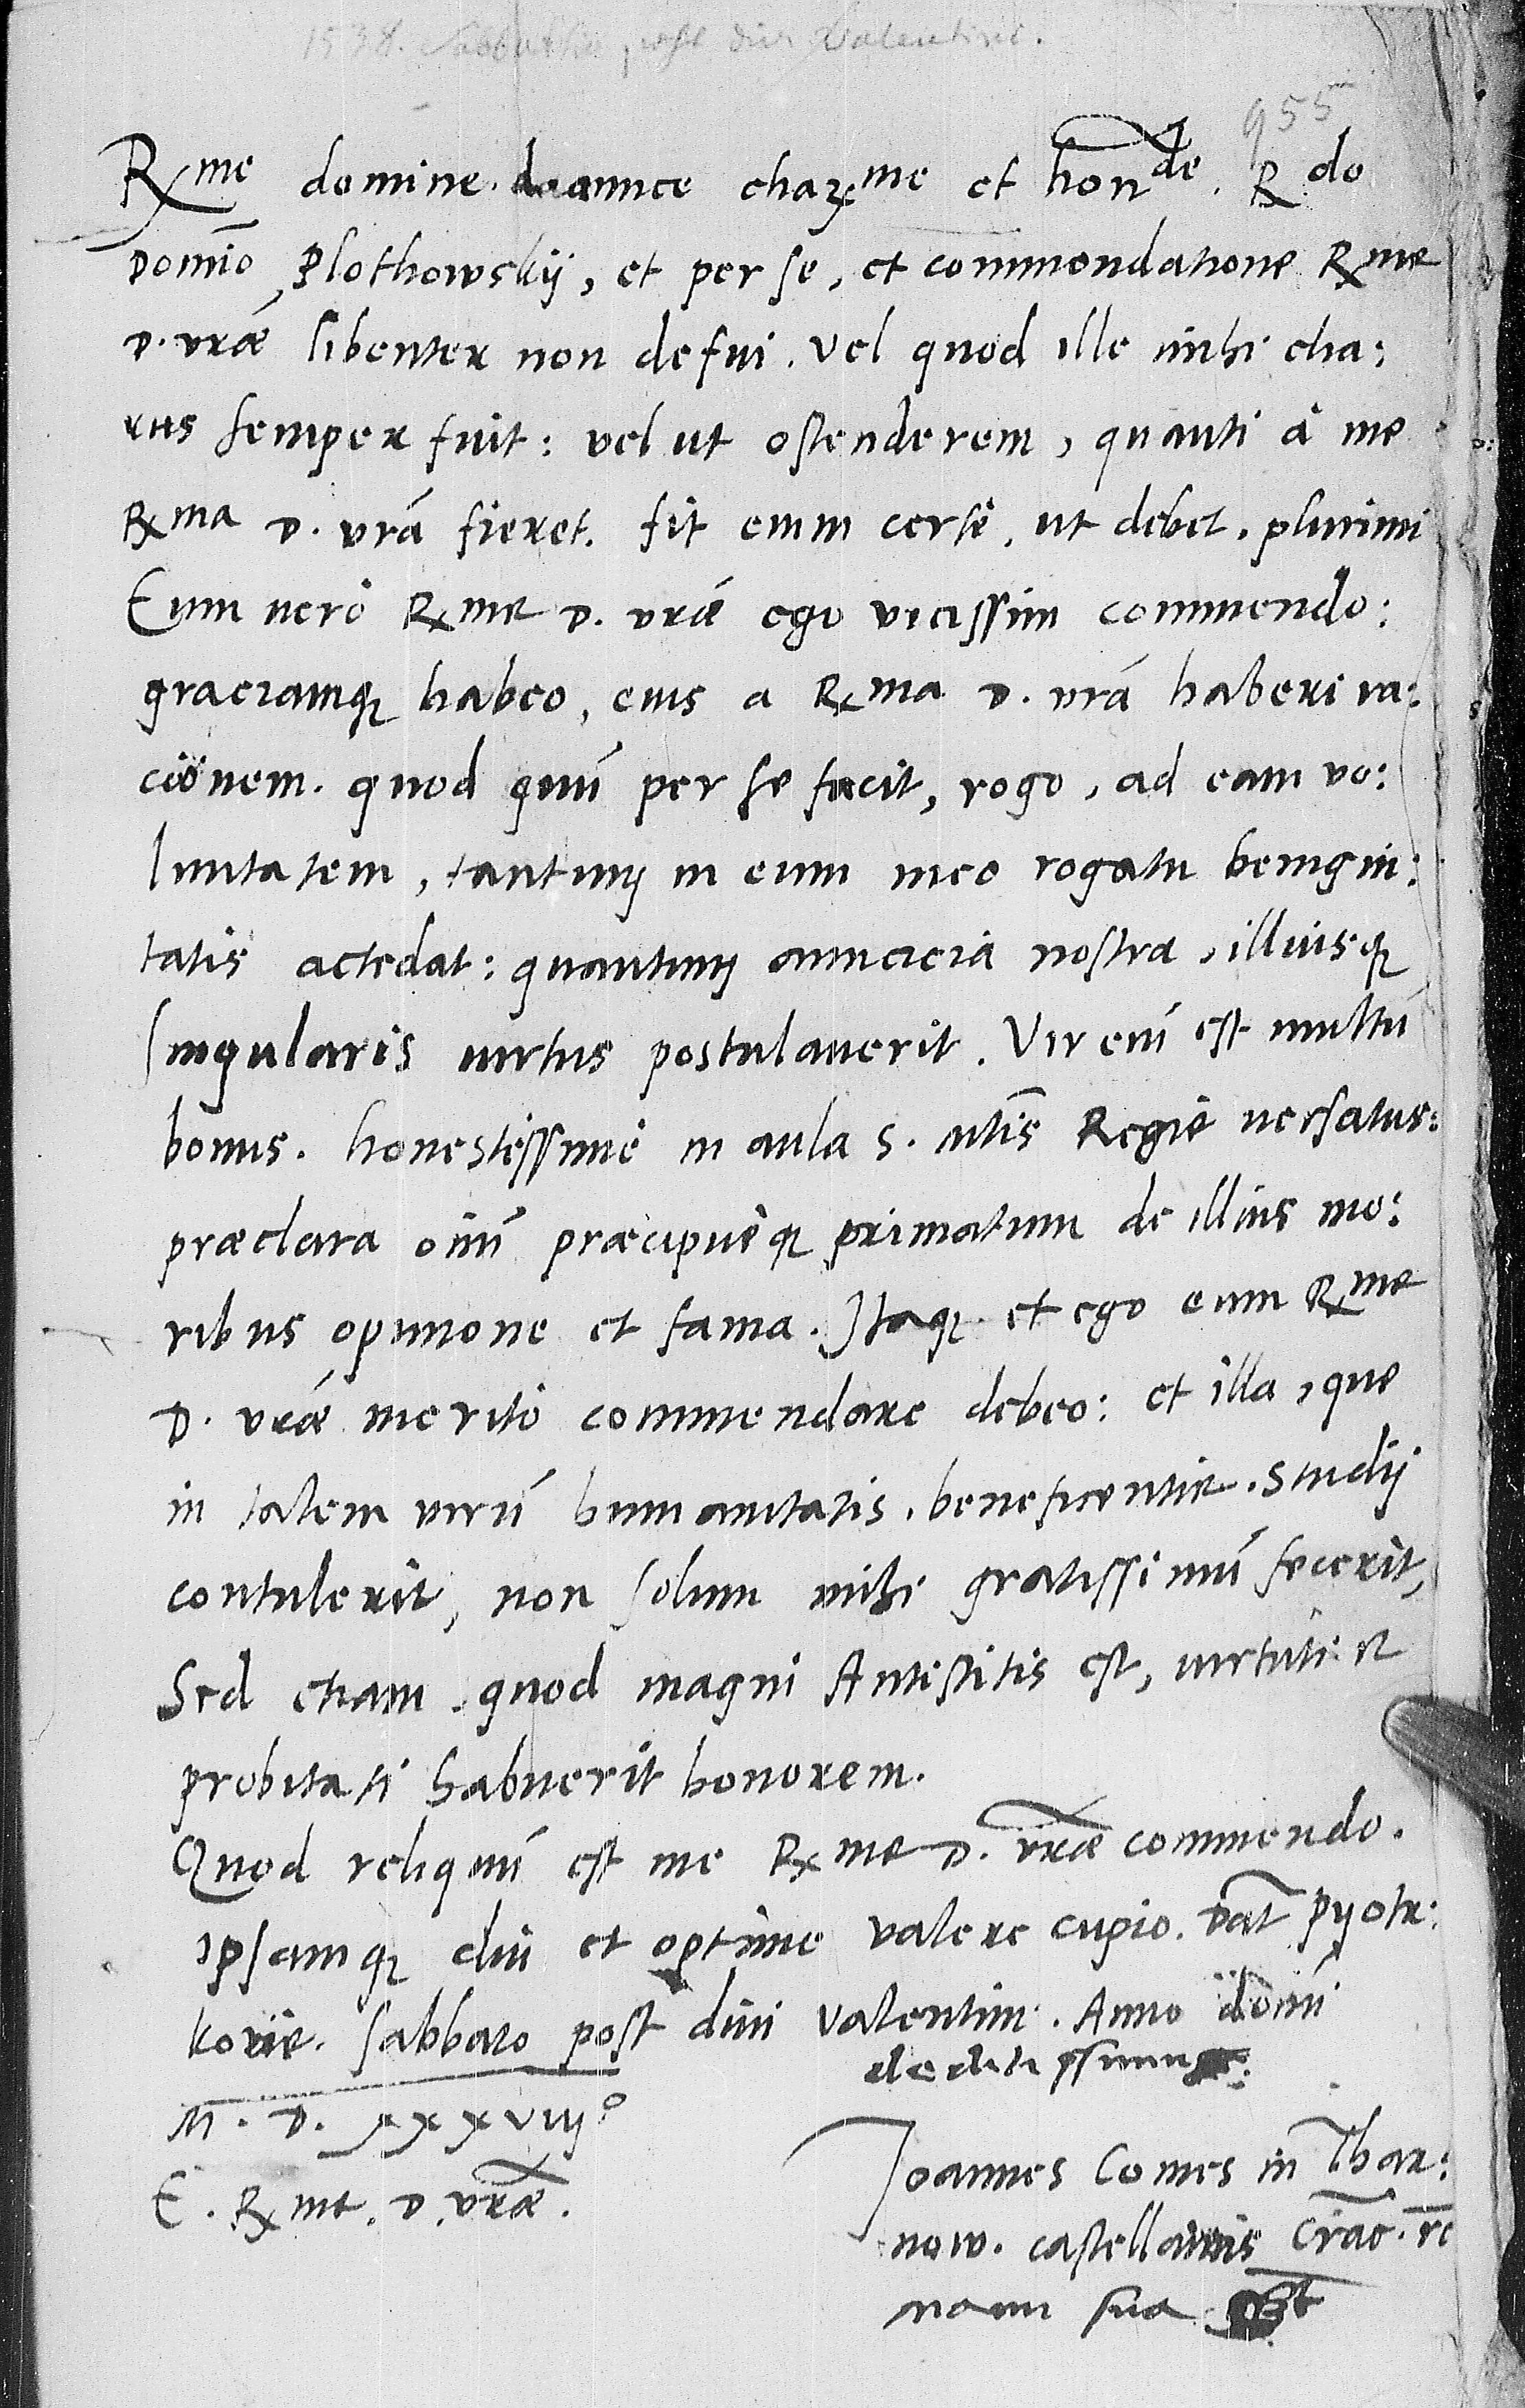 1538. Sabbatho post divi Valentini.
955
Rx^me domine. amice charx^me et hon^de. R^do
Domĩo Plothowskij, et per se, et commendatione Rx^me
D. vr̃æ libenter non defui. Vel quod ille mihi cha:
rus semper fuit: vel ut ostenderem, quanti à me
Rx^ma D. vr̃a fieret. fit enim certè, ut debet. plurimi
Eum verò Rx^me D. vr̃æ ego vicissim commendo:
graciamq; habeo, eius a Rx^ma D. vr̃a haberi ra:
cionem. quod quũ per se facit, rogo, ad eam vo:
luntatem, tantum in eum meo rogatu benigni:
tatis accedat: quantum amicicia nostra, illiusq;
singularis virtus postulaverit. Vir eni est multũ
bonus. honestissimè in aula S. Mtis Regie versatus:
præclara oim præcipuèq; primatum de illius mo:
ribus opinione et fama. Itaq; et ego eum Rx^me
D. vr̃æ meritò commendare debeo: et illa, que
in talem virũ humanitatis. beneficentie. studij
contulerit, non solum mihi gratissimũ fecerit,
Sed etiam quod magni Antistitis est, virtuti et
probitati habuerit honorem.
Quod reliquũ est me Rx^me D. vr̃æ commendo.
ipsamq; diu et optime valere cupio. Dat̃ Pyotr:
kovie. Sabbato post divi Valentini. Anno domi
M. D. xxxviij°
E. Rx^me. D. vr̃æ.
deditissimus:
Joannes Comes in Thar:
now. castellanus Crac. rc
manu sua sst